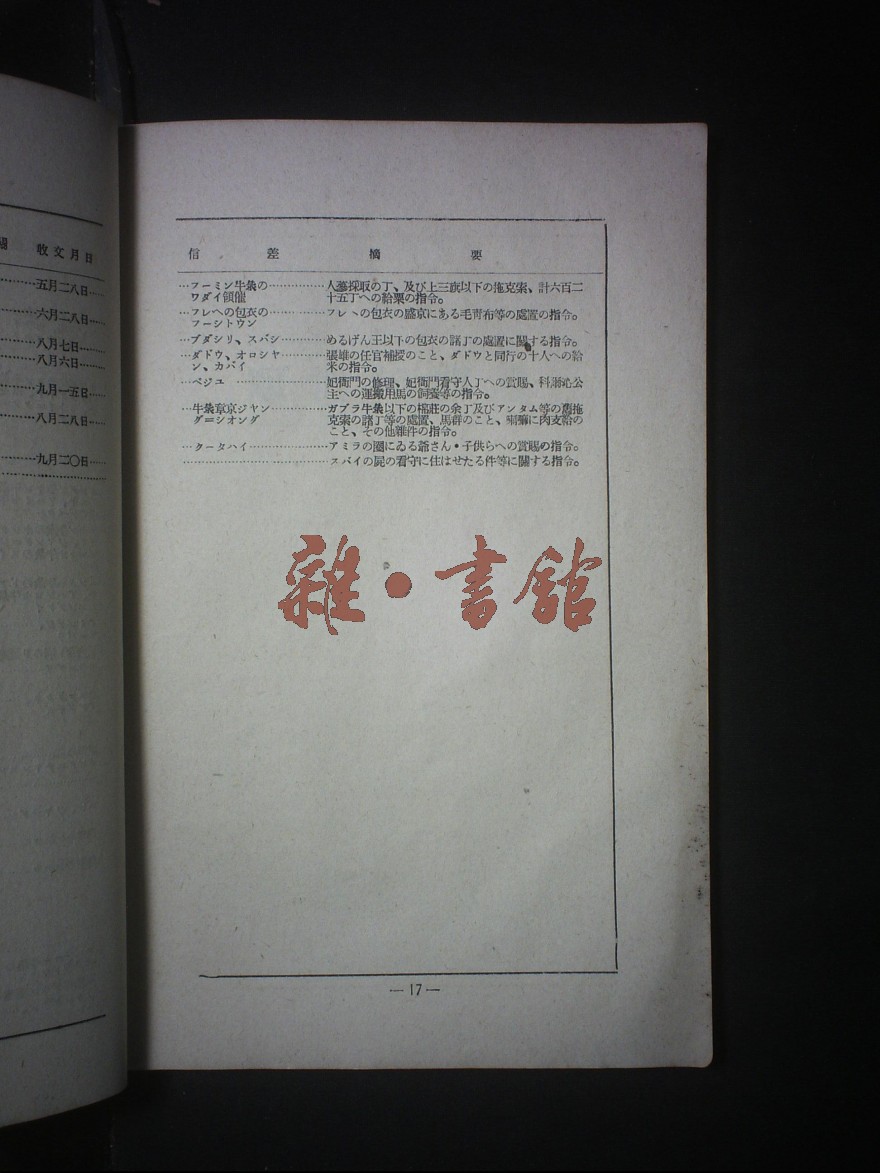 日月文收
五月二八日
六月二八日
八月七日
八月六日
九月一五日
八月二八日
九月二〇日
信 差 摘 要
フーミン牛彔の……人蔘採取の丁、及び上三旗以下の拖克索、計六百二
ワダイ領催 十五丁への給粟の指令。
フレヘの包衣の……フレヘの包衣の盛京にある毛靑布等の處置の指令。
フーシトウン
ブダシリ、スバシ……めるげん王以下の包衣の諸丁の處置に關する指令。
ダドウ、オロシヤ……張雄の任官補授のこと、ダドウと同行の十人への給
ン、カバイ 米の指令。
ベジユ……妃衙門の修理、妃衙門看守人丁への賞賜、科爾沁公
主への運搬用馬の飼養等の指令。
牛彔章京ジヤン……ガブラ牛彔以下の棉莊の余丁及びアンタム等の舊拖
グ＝シオング 克索の諸丁等の處置、馬群のこと、喇嘛に肉支給の
こと、その他雜件の指令。
クータハイ……アミラの園にゐる爺さん・子供らへの賞賜の指令。
……スバイの屍の看守に住はせたる件等に關する指令。
雜・書館
—17—